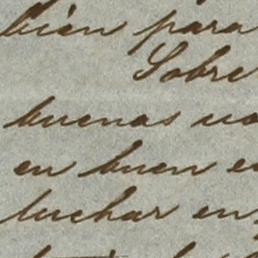 bien para
Sobre
buenas
en buen
luchar en